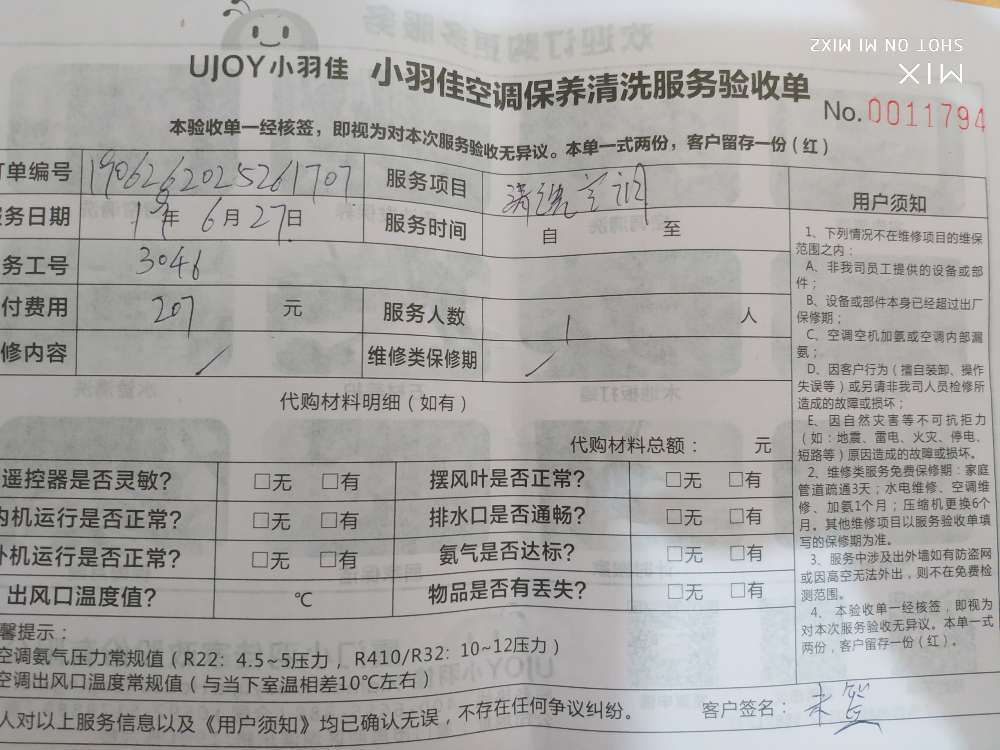 SHOT ON MI MIX2
MIX
UJOY小羽佳 小羽佳空调保养清洗服务验收单
No. 0011794
本验收单一经核签，即视为对本次服务验收无异议。本单一式两份，客户留存一份（红）
订单编号 1906262025261707 服务项目 清洗空调
服务日期 19年 6月27日 服务时间 自 至
务工号 3046
付费用 207 元 服务人数 1 人
修内容 / 维修类保修期 /
代购材料明细（如有）
代购材料总额： 元
遥控器是否灵敏？ □无 □有 摆风叶是否正常？ □无 □有
内机运行是否正常？ □无 □有 排水口是否通畅？ □无 □有
外机运行是否正常？ □无 □有 氨气是否达标？ □无 □有
出风口温度值？ ℃ 物品是否有丢失？ □无 □有
馨提示：
空调氨气压力常规值（R22：4.5~5压力，R410/R32：10~12压力）
空调出风口温度常规值（与当下室温相差10℃左右）
人对以上服务信息以及《用户须知》均已确认无误，不存在任何争议纠纷。 客户签名：未签
用户须知
1、下列情况不在维修项目的维保
范围之内：
A、非我司员工提供的设备或部
件；
B、设备或部件本身已经超过出厂
保修期；
C、空调空机加氨或空调内部漏
氨；
D、因客户行为（擅自装卸、操作
失误等）或另请非我司人员检修所
造成的故障或损坏；
E、因自然灾害等不可抗拒力
（如：地震、雷电、火灾、停电、
短路等）原因造成的故障或损坏。
2、维修类服务免费保修期：家庭
管道疏通3天；水电维修、空调维
修、加氨1个月；压缩机更换6个
月。其他维修项目以服务验收单填
写的保修期为准。
3、服务中涉及出外墙如有防盗网
或因高空无法外出，则不在免费检
测范围。
4、本验收单一经核签，即视为
对本次服务验收无异议。本单一式
两份，客户留存一份（红）。